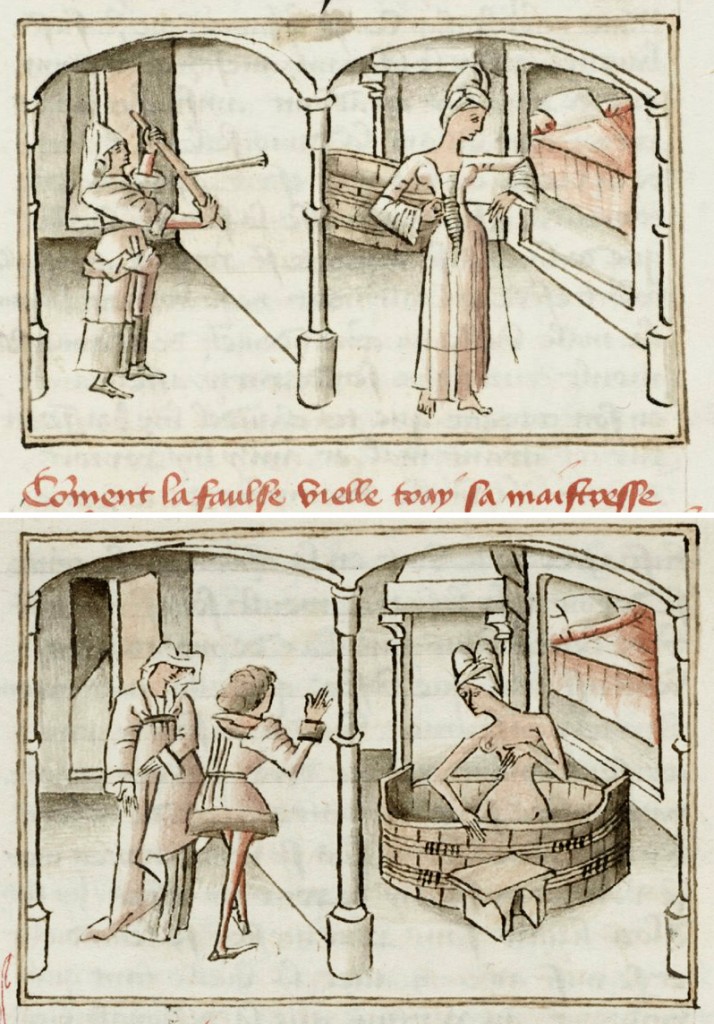 Co͞ment la faulse vielle tray sa maistresse